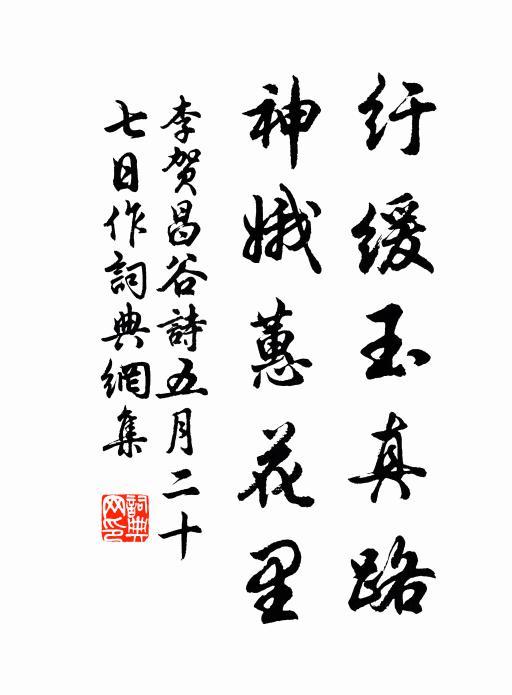 纡緩玉真路
神娥蕙花里
李贺昌谷詩五月二十
七日作詞典網集
詞典
网印